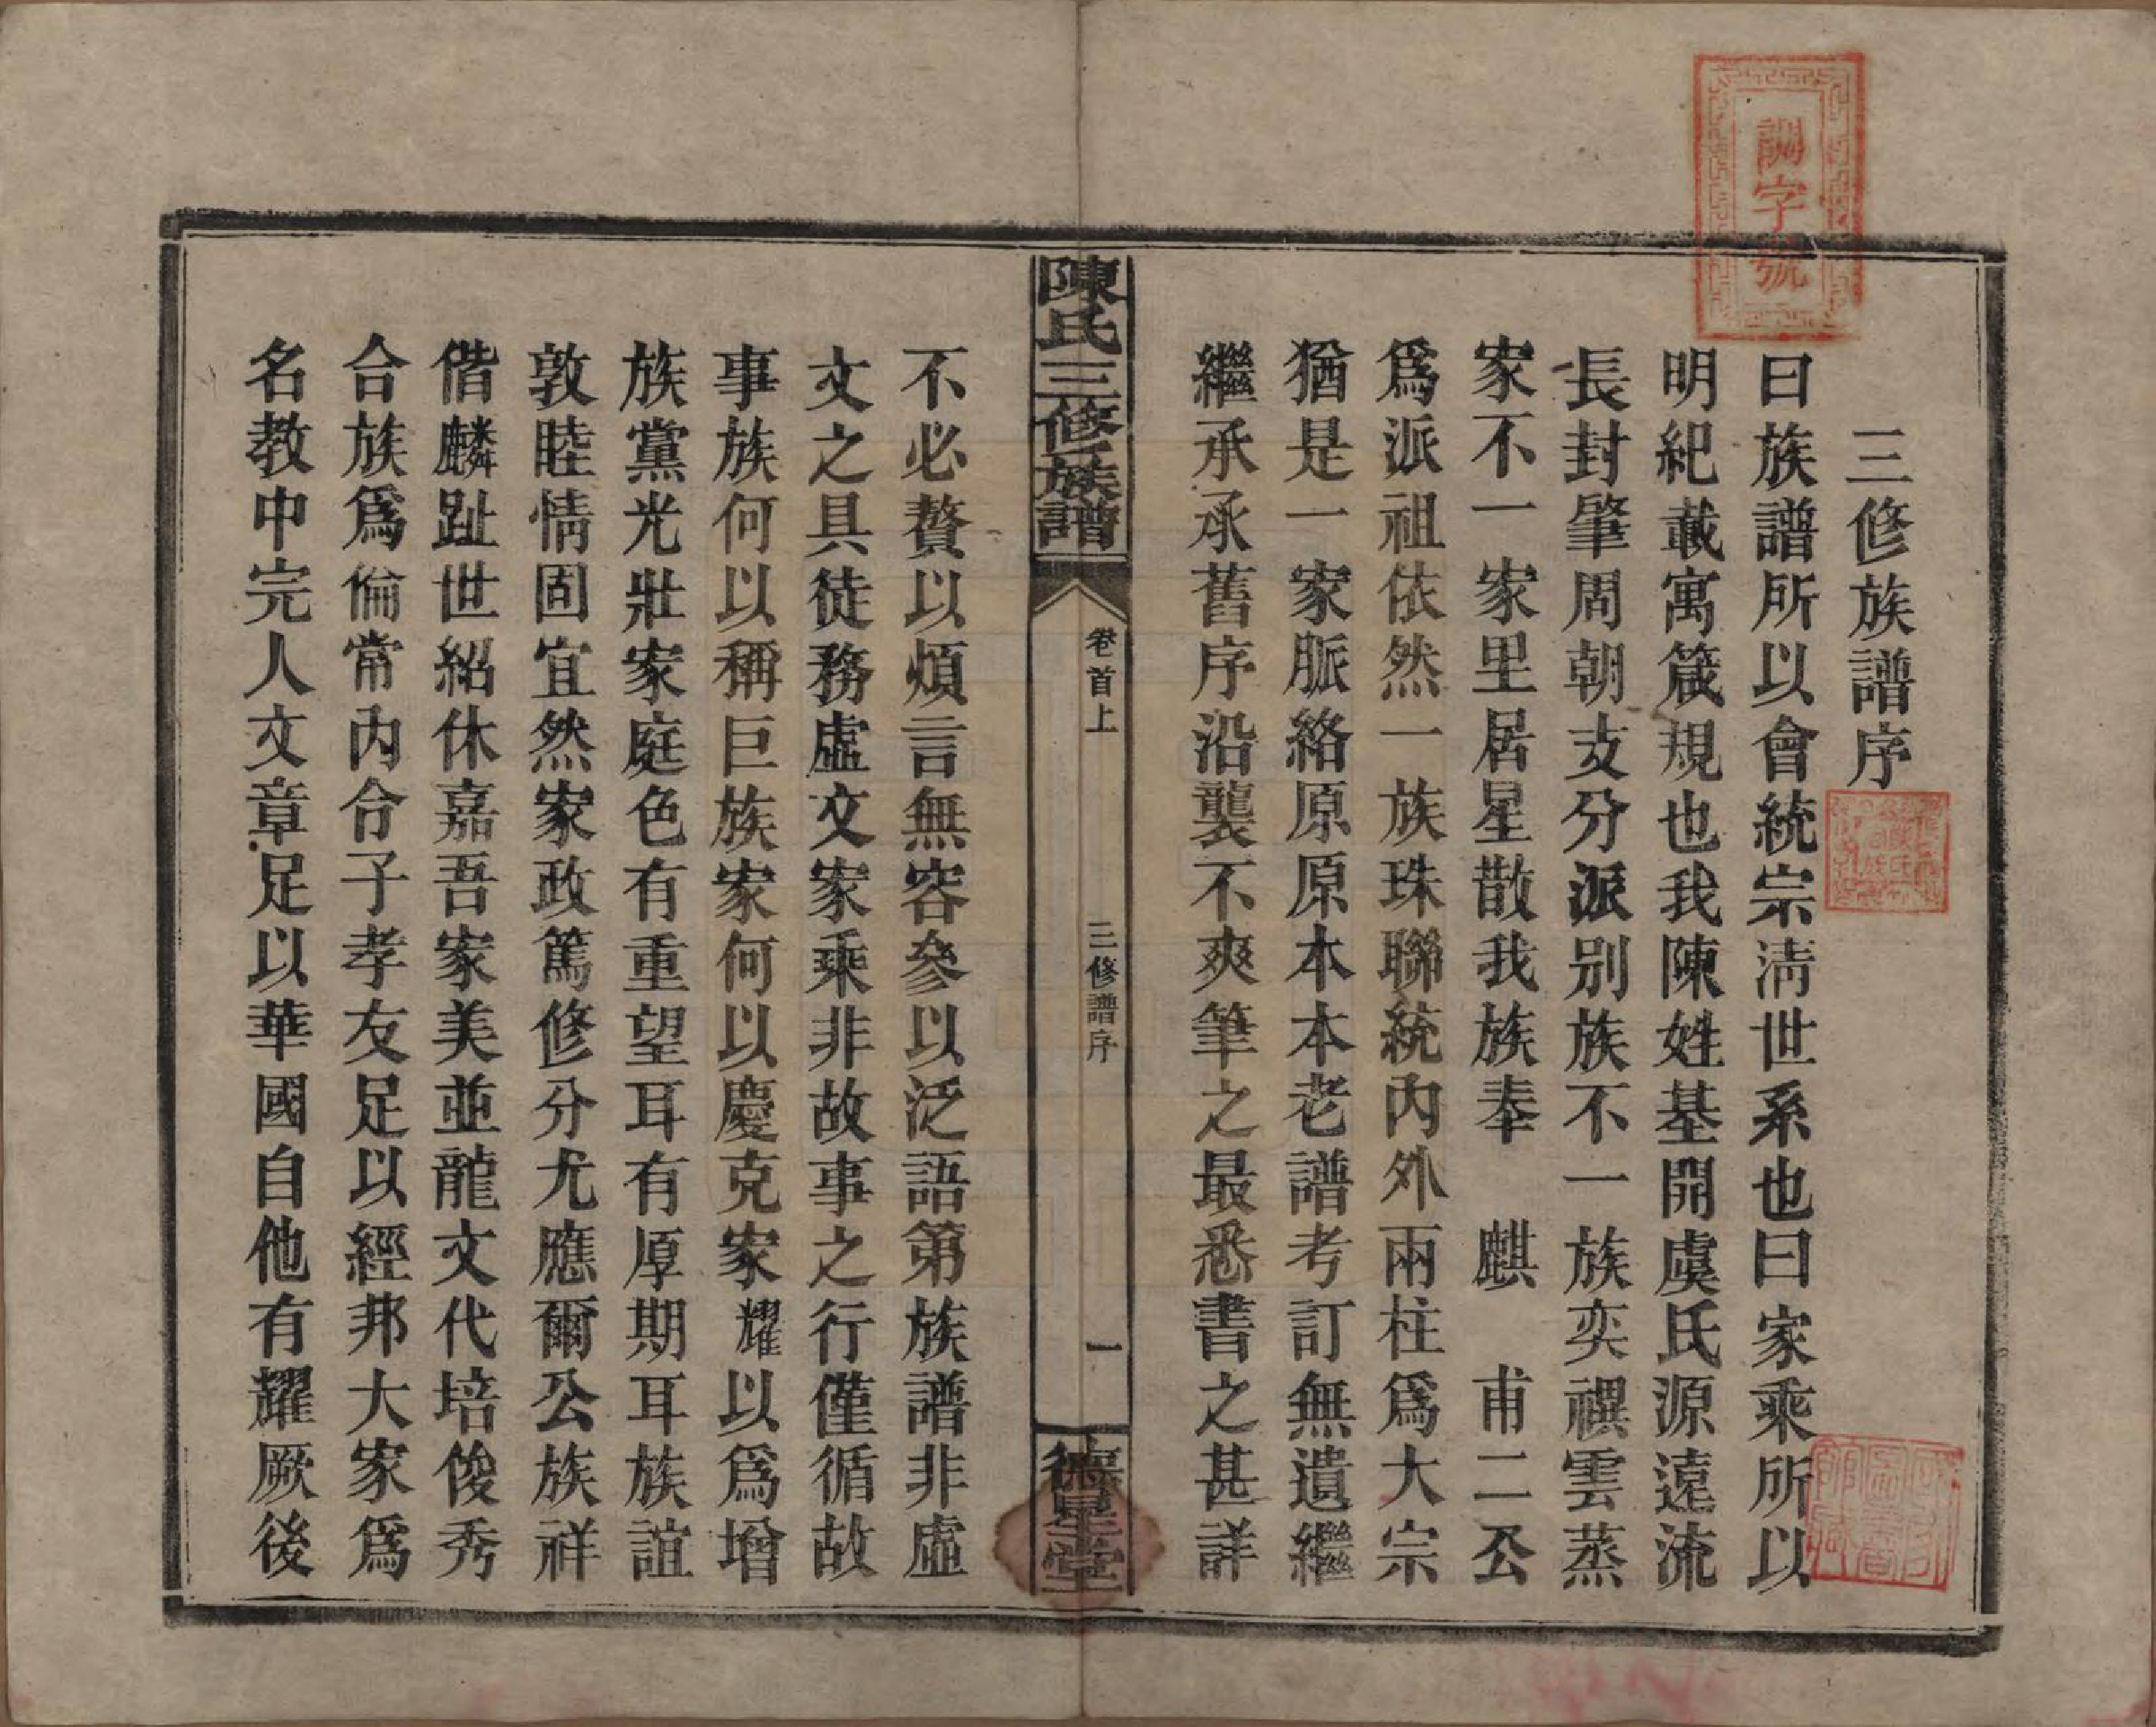 調字號
三修族譜序
曰族譜所以會統宗淸世系也曰家乘所以
明紀載寓箴規也我陳姓基開虞氏源遠流
長封肇周朝支分派別族不一族奕禩雲蒸
家不一家里居星散我族奉 麒 甫二公
爲派祖依然一族珠聯統內外兩柱爲大宗
猶是一家脈絡原原本本老譜考訂無遺繼
繼承承舊序沿襲不爽筆之最悉書之甚詳
陳氏三修族譜
卷首上
三修譜序
一
德星堂
不必贅以煩言無容參以泛語第族譜非虛
文之具徒務虛文家乘非故事之行僅循故
事族何以稱巨族家何以慶克家耀以爲增
族黨光壯家庭色有重望耳有厚期耳族誼
敦睦情固宜然家政篤修分尤應爾公族祥
偕麟趾世紹休嘉吾家美並龍文代培俊秀
合族爲倫常內合子孝友足以經邦大家爲
名教中完人文章足以華國自他有耀厥後